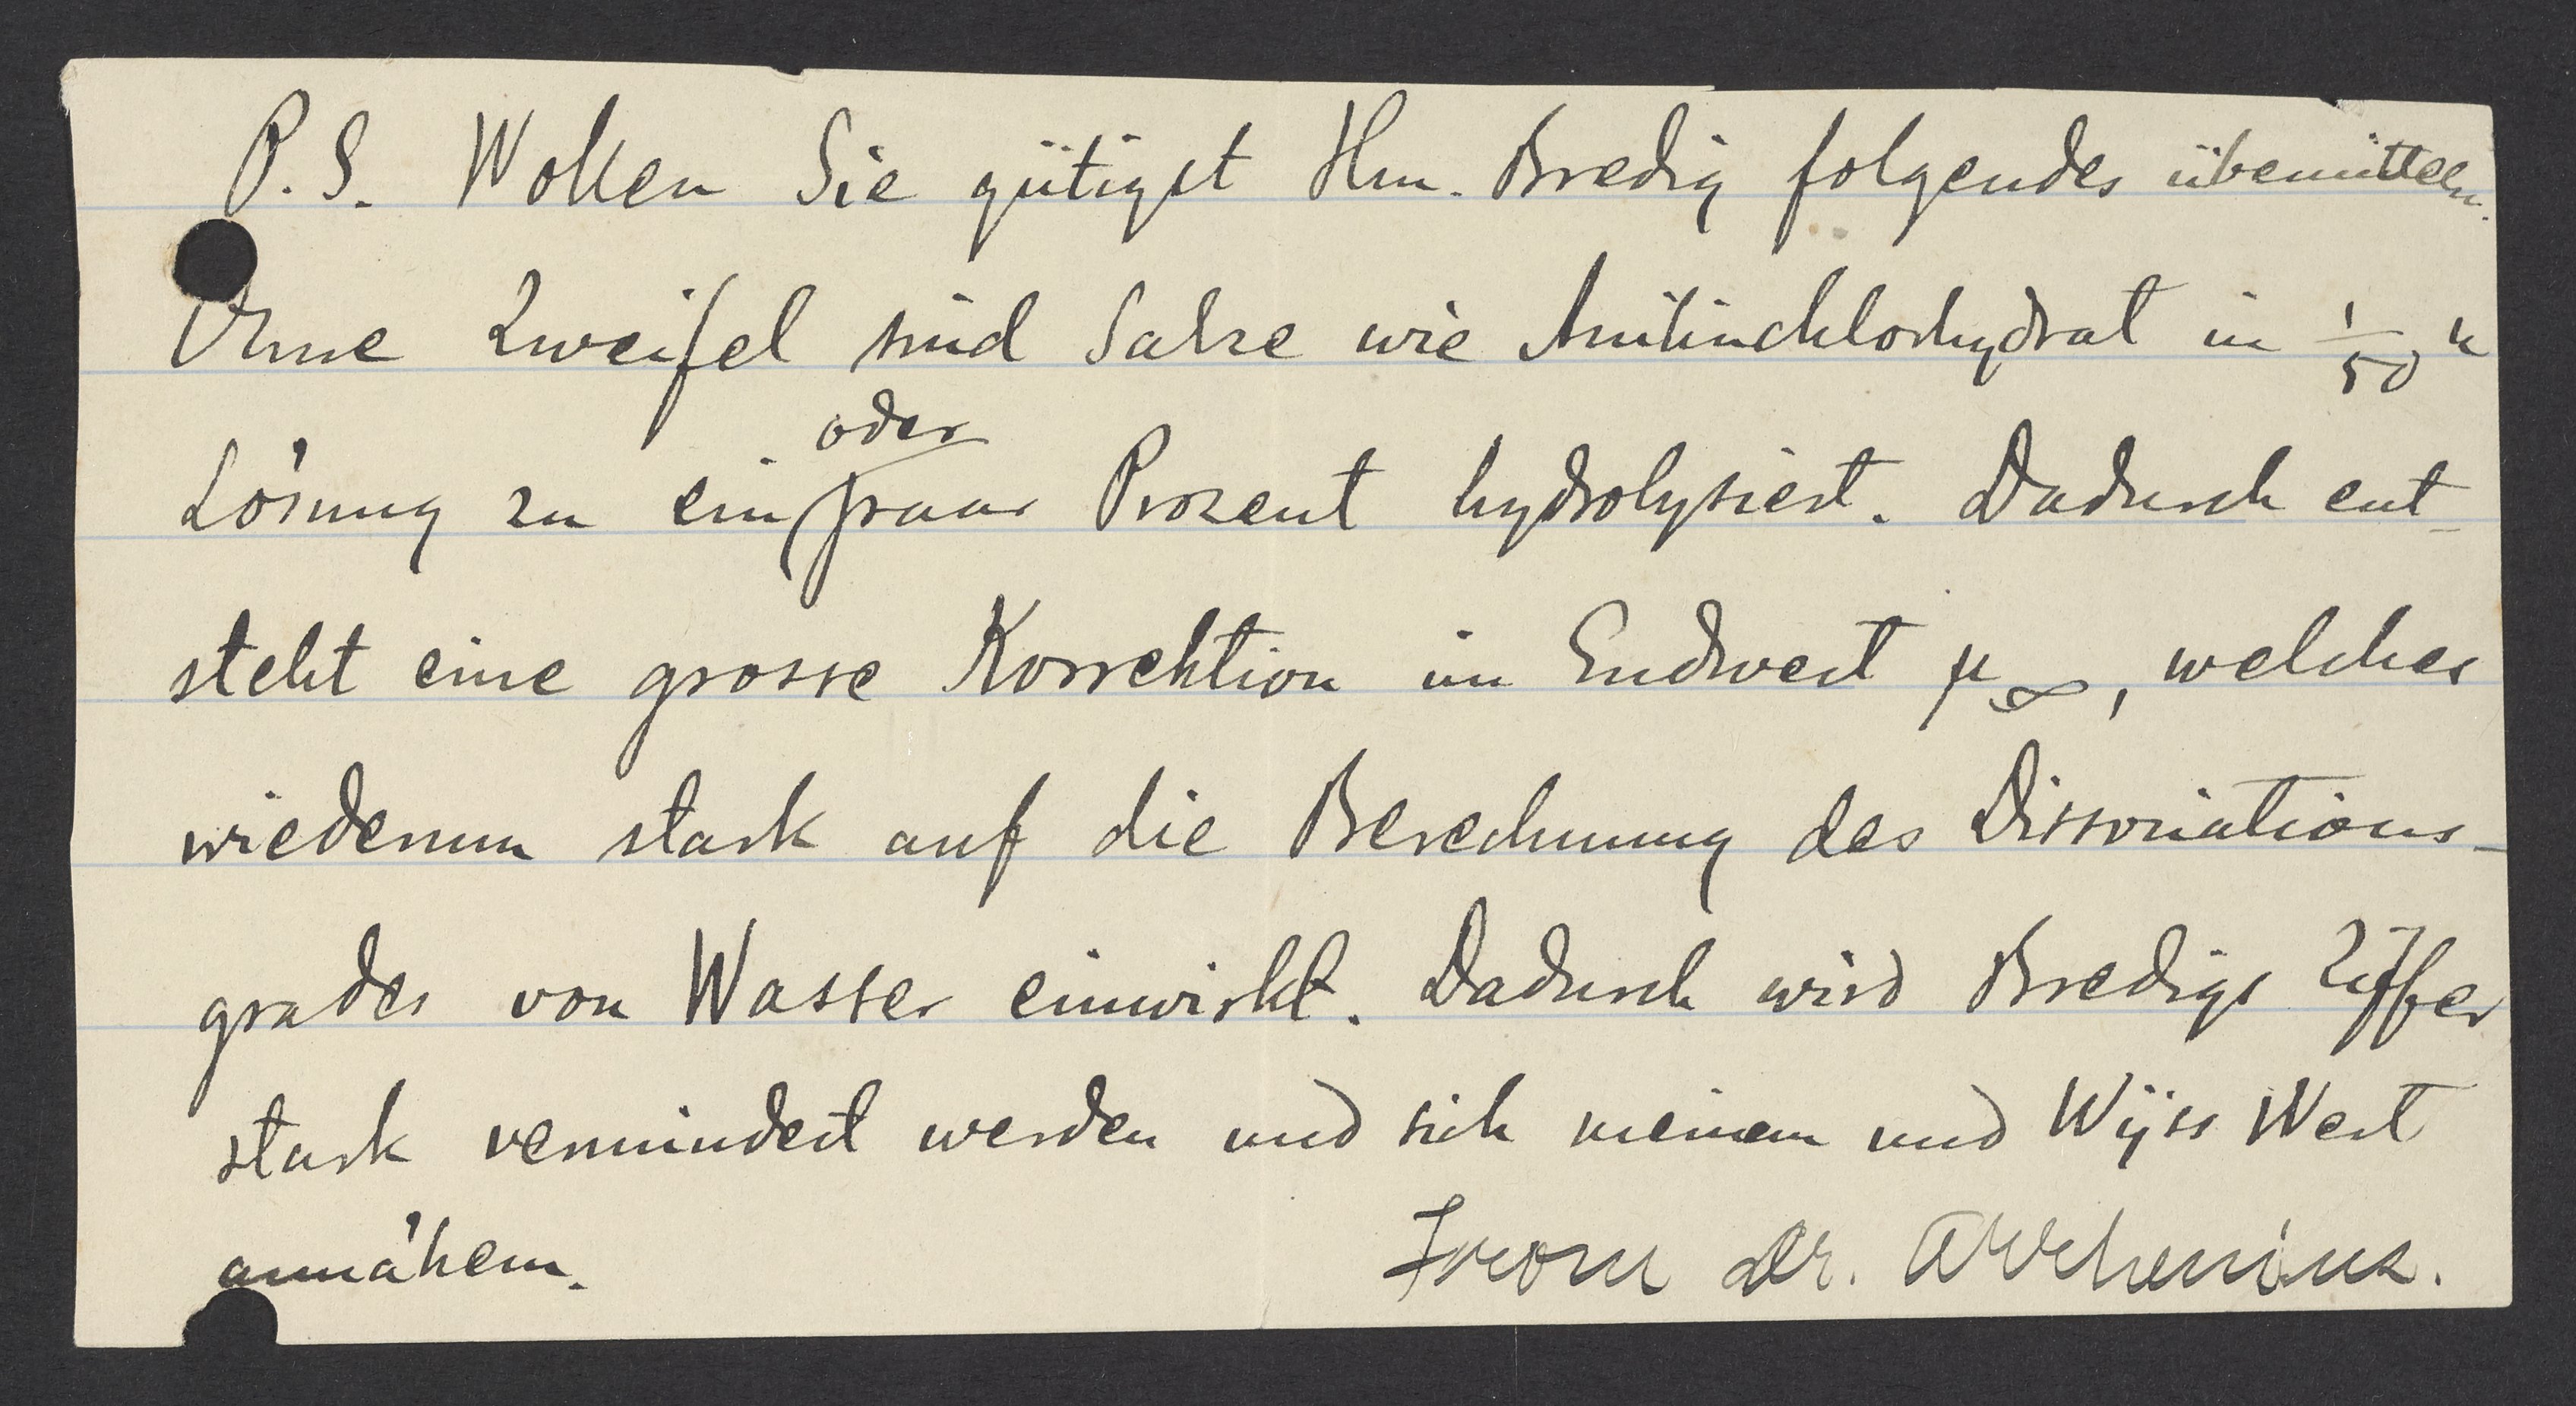 P.S. Wollen Sie gütigst Hrn. Bredig folgendes übermitteln.
Ohne Zweifel sind Salze wie Anilinchlorhydrat in 1/50 n
Lösung zu ein oder paar Prozent hydrolysiert. Dadurch ent-
steht eine grosse Korrektion im Endwert μ∞, welches
wiederum stark auf die Berechnung des Dissociations-
grades von Wasser einwirkt. Dadurch wird Bredigs Ziffer
stark vermindert werden und sich meinem und Wijss Wert
annähern.
From Dr. Arrhenius.